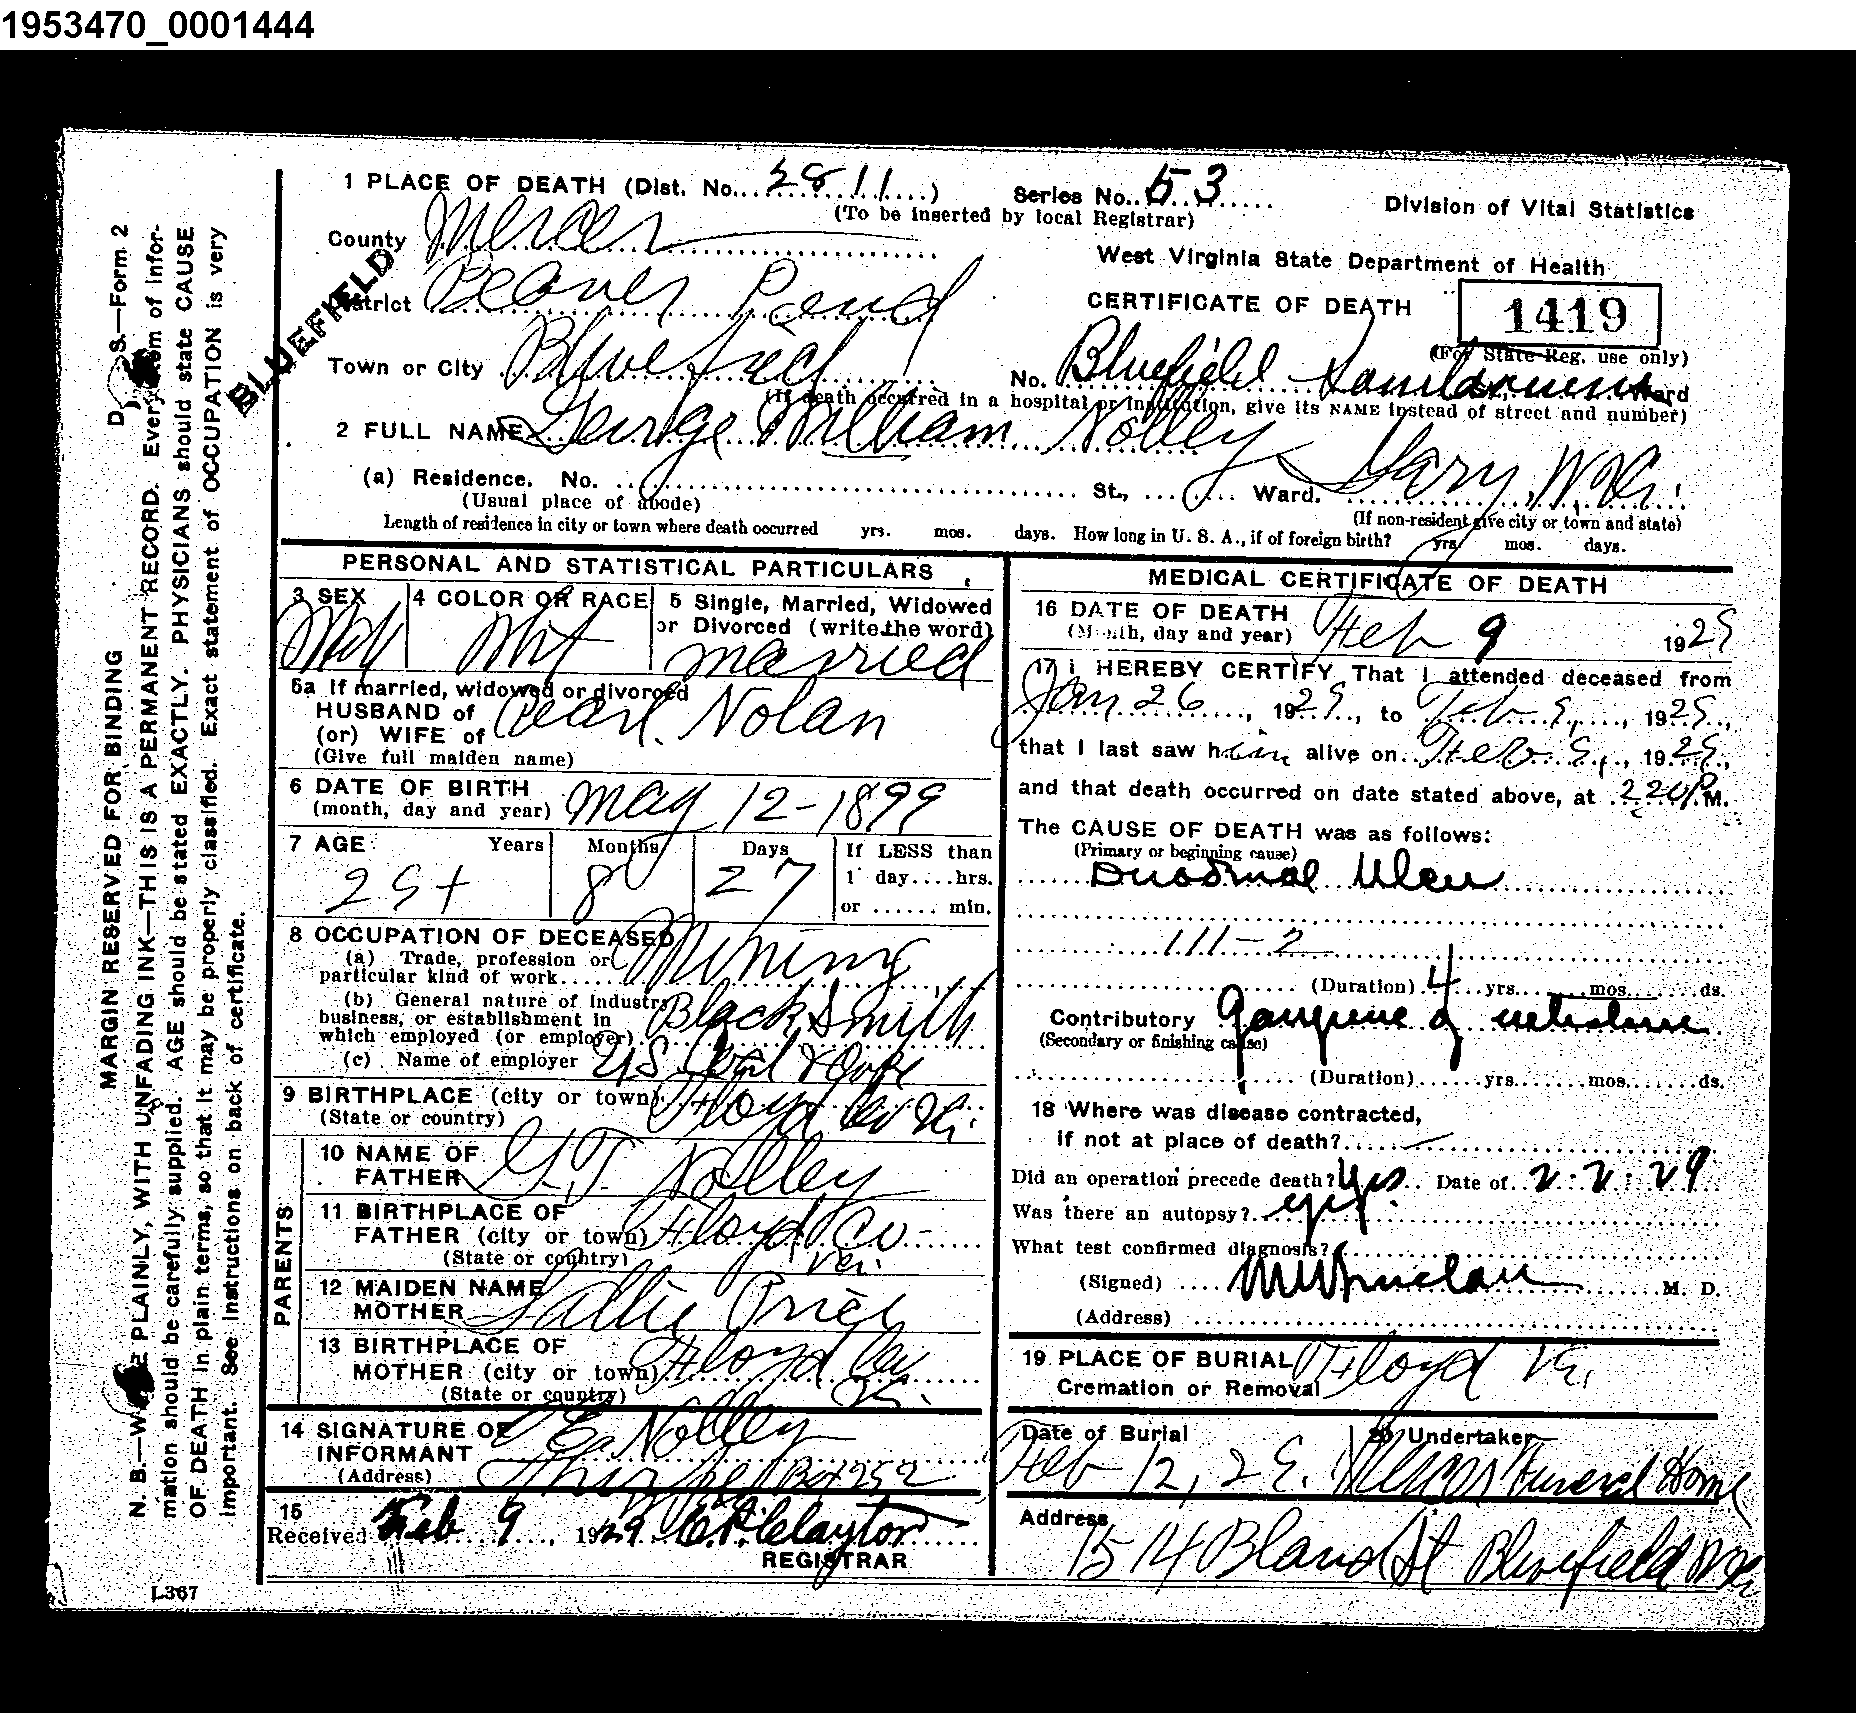 1953470_0001444
1 PLACE OF DEATH (Dist. No. 2811) Series No. 53
(To be inserted by local Registrar)
Division of Vital Statistics
County Mercer
West Virginia State Department of Health
BLUEFIELD
District Beaver Pond
CERTIFICATE OF DEATH 1419
(For State Reg. use only)
Town or City Bluefield No. Bluefield Ward
(If death occurred in a hospital or institution, give its NAME instead of street and number)
2 FULL NAME George William Nolley
(a) Residence. No. St., Ward. Gary, W. Va.
(Usual place of abode) (If non-resident give city or town and state)
Length of residence in city or town where death occurred yrs. mos. days. How long in U. S. A., if of foreign birth? yrs. mos. days.
PERSONAL AND STATISTICAL PARTICULARS
3 SEX 4 COLOR OR RACE 5 Single, Married, Widowed
or Divorced (write the word)
married
5a If married, widowed or divorced
HUSBAND of Pearl Nolan
(or) WIFE of
(Give full maiden name)
6 DATE OF BIRTH
(month, day and year) May 12-1899
7 AGE Years Months Days If LESS than
29+ 8 27 1 day....hrs.
or ...... min.
8 OCCUPATION OF DECEASED
(a) Trade, profession or
particular kind of work Mining
(b) General nature of industry
business, or establishment in
which employed (or employer) Black Smith
(c) Name of employer U S Coal & Coke
9 BIRTHPLACE (city or town) Floyd Co Va.
(State or country)
PARENTS
10 NAME OF
FATHER G.T. Nolley
11 BIRTHPLACE OF
FATHER (city or town) Floyd Co-
(State or country) Va.
12 MAIDEN NAME
MOTHER Sallie Price
13 BIRTHPLACE OF
MOTHER (city or town) Floyd Co
(State or country) Va.
14 SIGNATURE OF
INFORMANT E. Nolley
(Address) Box 252
15
Received Feb 9, 1929
REGISTRAR
MEDICAL CERTIFICATE OF DEATH
16 DATE OF DEATH
(Month, day and year) Feb 9 1929
17 I HEREBY CERTIFY, That I attended deceased from
Jan 26, 1929, to Feb 9, 1929,
that I last saw him alive on Feb 9, 1929,
and that death occurred on date stated above, at 2 20 P M.
The CAUSE OF DEATH was as follows:
(Primary or beginning cause)
Duodenal Ulcer
111-2
(Duration) 4 yrs. mos. ds.
Contributory Gangrene of
(Secondary or finishing cause)
(Duration) yrs. mos. ds.
18 Where was disease contracted,
if not at place of death?
Did an operation precede death? Yes Date of 2-2-29
Was there an autopsy? yes
What test confirmed diagnosis?
(Signed) M. D.
(Address)
19 PLACE OF BURIAL Floyd Va.
Cremation or Removal
Date of Burial 20 Undertaker
Feb 12, 29. Mercer Funeral Home
Address
1514 Bland St Bluefield W Va
MARGIN RESERVED FOR BINDING
N. B.—WRITE PLAINLY, WITH UNFADING INK—THIS IS A PERMANENT RECORD. Every item of infor-
mation should be carefully supplied. AGE should be stated EXACTLY. PHYSICIANS should state CAUSE
OF DEATH in plain terms, so that it may be properly classified. Exact statement of OCCUPATION is very
important. See instructions on back of certificate.
S.—Form 2
L367